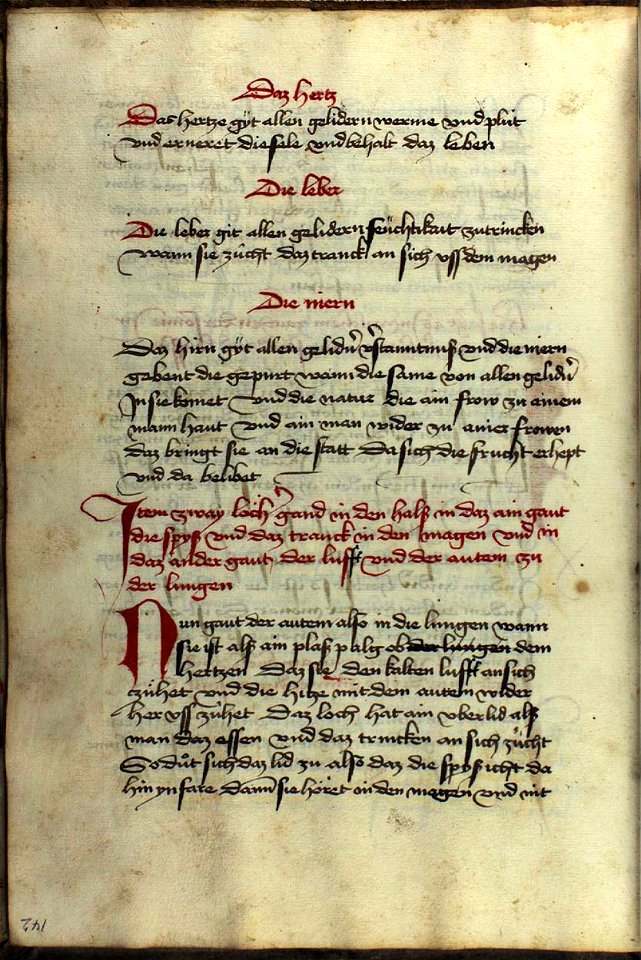 Daz hertz
Das hertze gÿt allen gelidern werme vnd plůt
vnd erneret die sele vnd behalt daz leben
Die leber
Die leber git allen gelidern feüchtikait zutrincken
wann sie zücht daz tranck an sich vss dem magen
Die niern
Daz hirn gÿt allen gelidn̄ v̄stanntniß vnd die niern
gebent die gepurt wann die same von allen gelidn̄
In sie komet vnd die natur die ain frow zu ainem
mann haut vnd ain man wider zu ainer frowen
daz bringt sie an die statt Da sich die frucht erhept
vnd da belibet
Item zway löch̄ gand in den halß in daz ain gaut
die spÿß vnd daz tranck in den magen vnd in
daz ander gaut der lufft vnd der autem zu
der lungen
Nun gaut der autem also in die lungen wann
sie ist alß ain plaß palg ob der lungen dem
hertzen Daz sie den kalten lufft an sich
zühet vnd die hitze mit dem autem wider
her vss zühet Daz loch hat ain vberlid alß
man daz essen vnd daz trincken an sich zücht
So důt sich daz lid zu also daz die spÿß icht da
hin yn fare Dann sie höret in den magen vnd nit
142